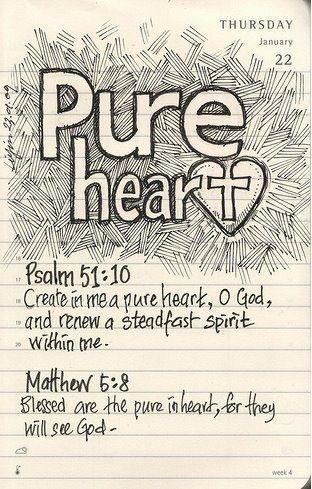 THURSDAY
January
22
Pure
heart
16
17 Psalm 51:10
18 Create in me a pure heart, O God,
19 and renew a steadfast spirit
20 within me.
Matthew 5:8
Blessed are the pure in heart, for they
will see God-
week 4